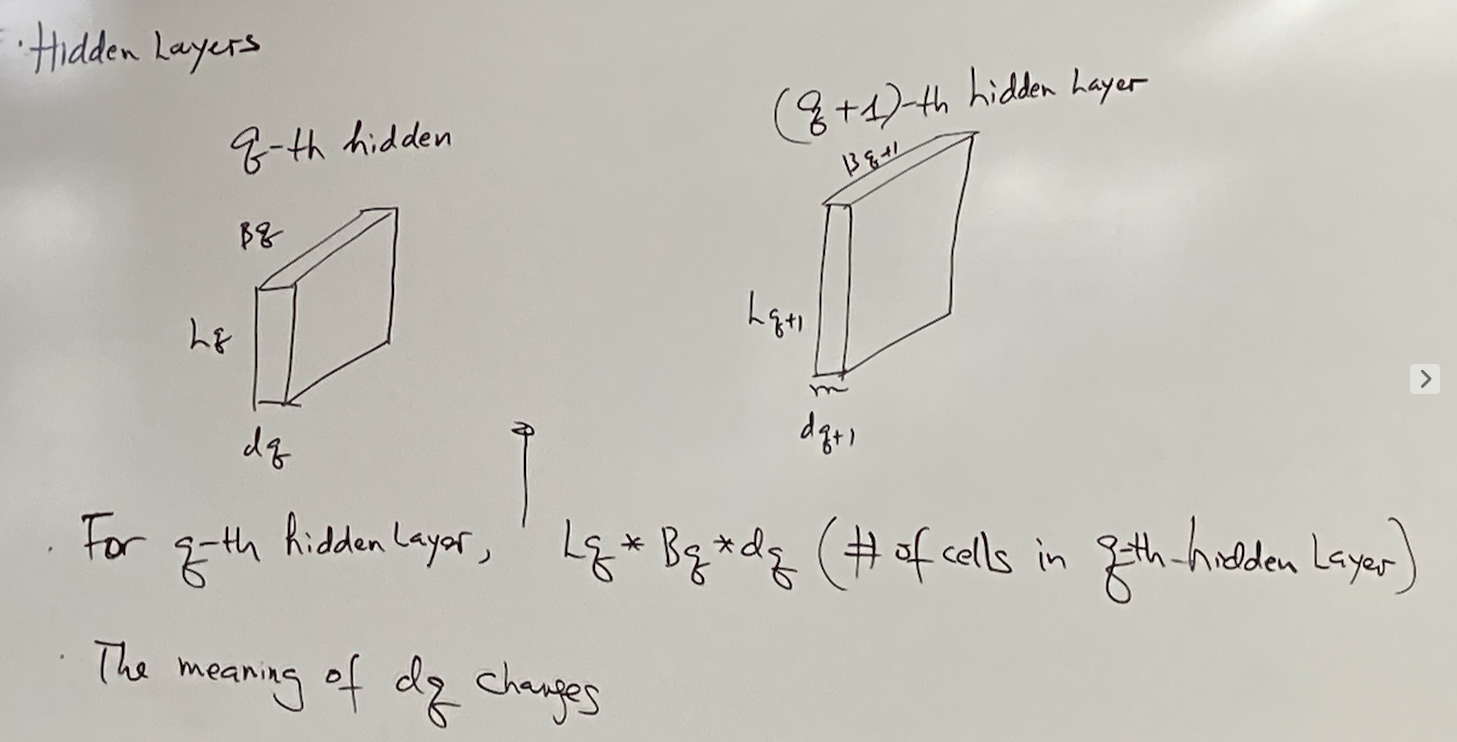 · Hidden Layers
q-th hidden
(q+1)-th hidden Layer
Bq
Bq+1
Lq
Lq+1
dq
dq+1
· For q-th hidden Layer, Lq * Bq * dq (# of cells in q-th-hidden Layer)
· The meaning of dq changes